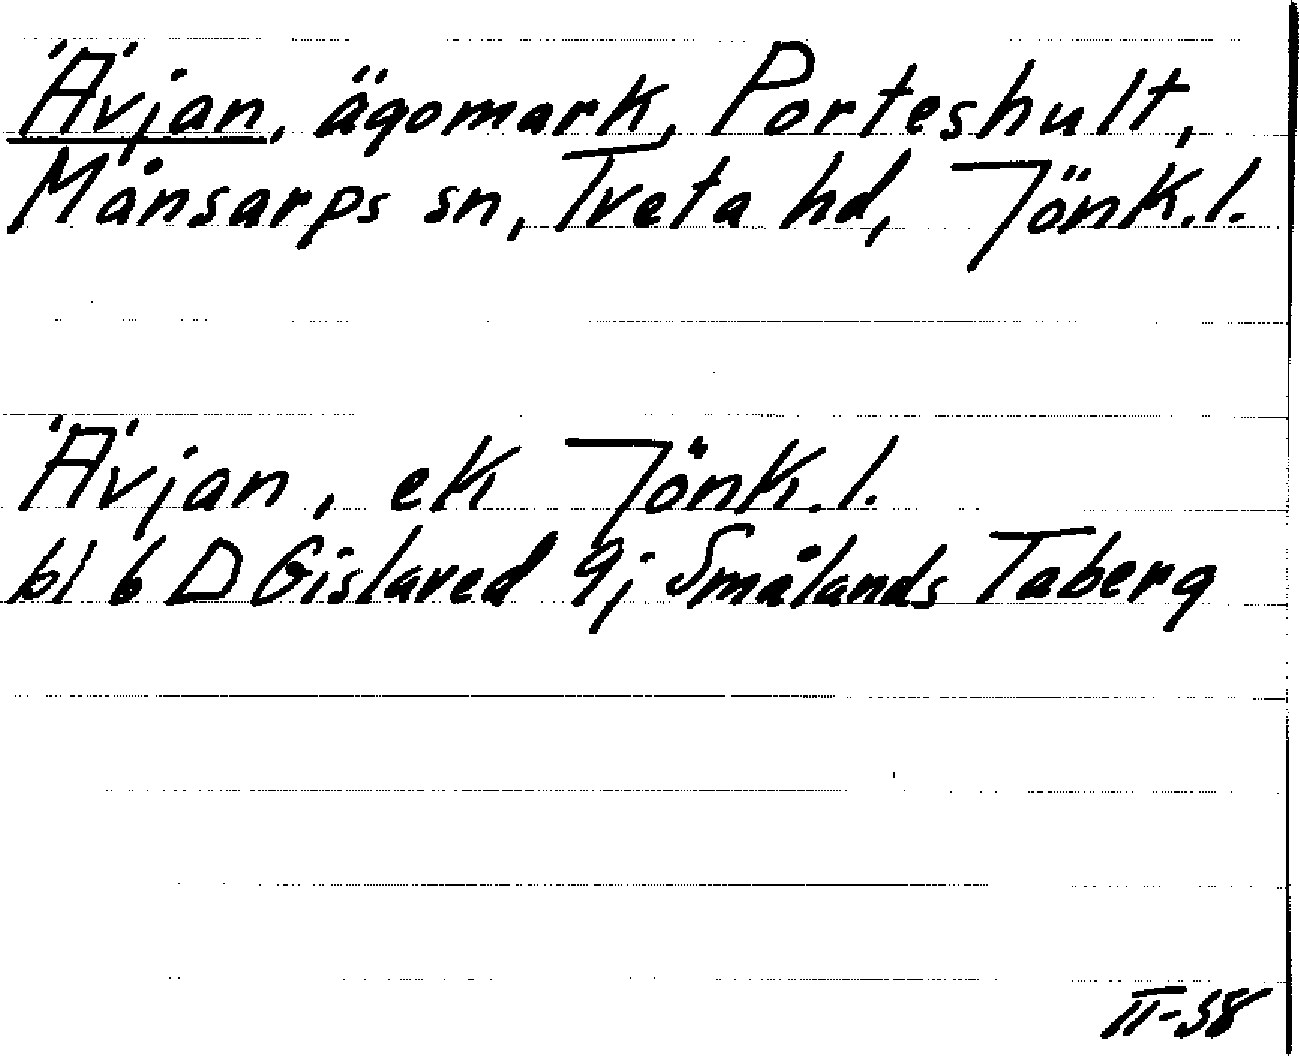 Ävjan, ägomark, Porteshult,
Månsarps sn, Tveta hd, Jönk.l.
Ävjan, ek Jönk.l.
bl 6 D Gislaved 9j Smålands Taberg
II-58